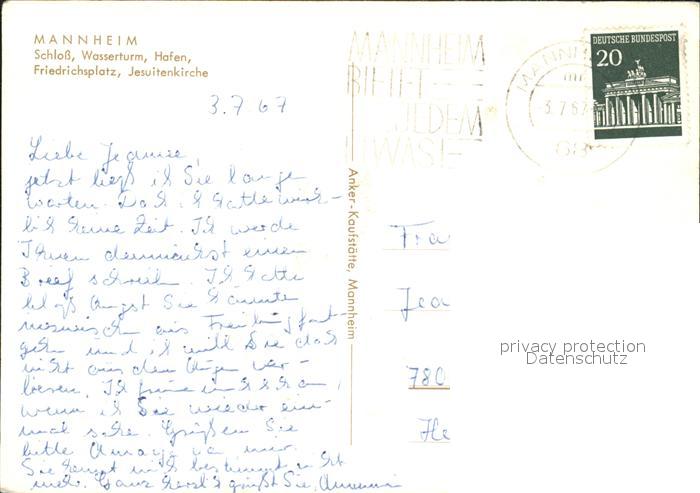 MANNHEIM
Schloß, Wasserturm, Hafen,
Friedrichsplatz, Jesuitenkirche
MANNHEIM
BIETET
JEDEM
WAS!
MANNHEIM
3.7.67
68
DEUTSCHE BUNDESPOST
20
3.7.67
Liebe Jeannine,
jetzt ließ ich Sie lange
warten. Doch ich hatte wirk-
lich keine Zeit. Ich werde
Ihnen demnächst einen
Brief schreiben. Ich hatte
bloß Angst Sie könnten
inzwischen aus Freiburg fort-
gehn und ich will Sie doch
nicht aus den Augen ver-
lieren. Ich freue mich
wenn ich Sie wieder ein-
mal sehe. Grüßen Sie
bitte von mir.
Sie kennt mich bestimmt nicht
mehr. Ganz herzlich grüßt Sie
Anker-Kaufstätte, Mannheim
Fra
Jea
780
He
privacy protection
Datenschutz